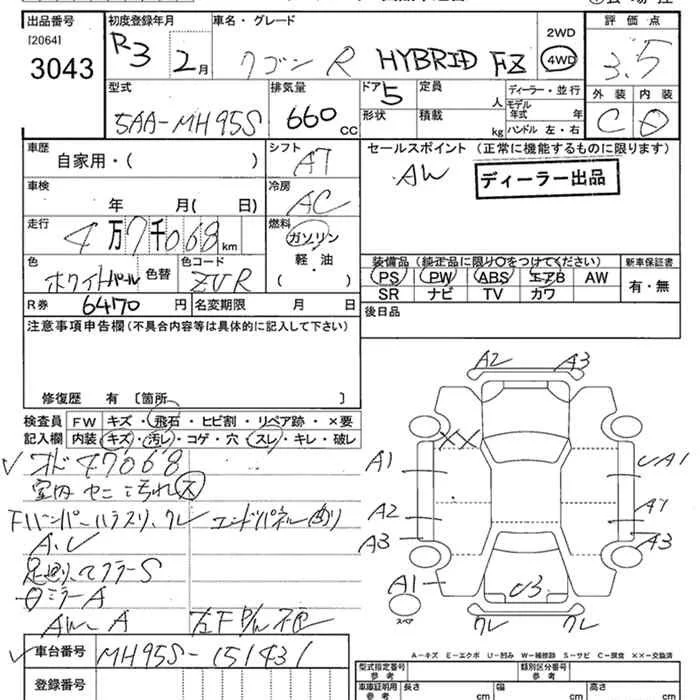 出品番号 初度登録年月 車名・グレード 評価点
[2064]
3043
R3 2月 ワゴンR HYBRID FZ 2WD 4WD 3.5
外装 内装
C D
型式 排気量 ドア 5 定員 人 ディーラー・並行
5AA-MH95S 660 cc 形状 積載 kg モデル年式 年
ハンドル 左・右
車歴 シフト セールスポイント (正常に機能するものに限ります)
自家用・( ) AT AW ディーラー出品
車検 冷房
年 月( 日) AC
走行 燃料
4万7千068 km ガソリン
軽・油
( )
装備品 (純正品に限り○をつけてください) 新車保証書
色 色替 色コード PS PW ABS エアB AW 有・無
ホワイトパール ZVR SR ナビ TV カワ
R券 64170円 名変期限 月 日 後日品
注意事項申告欄(不具合内容等は具体的に記入して下さい)
修復歴 有 〔箇所 〕
検査員 FW キズ・飛石・ヒビ割・リペア跡・×要
記入欄 内装 キズ・汚レ・コゲ・穴・スレ・キレ・破レ
オド 47068
室内 ヤニ 汚れ ス
エンドパネル
A、U
S
ミラーA
AW-A
車台番号 MH95S-151431
登録番号
A2 A3
XX
A1 UA1
A2 A1
A3 A3
A1 U3
スペア ワレ ワレ
A-キズ E-エクボ U-凹み W-補修跡 S-サビ C-腐食 ××-交換済
型式指定番号 参考 類別区分番号 参考
車庫証明用 参考 長さ cm 幅 cm 高さ cm